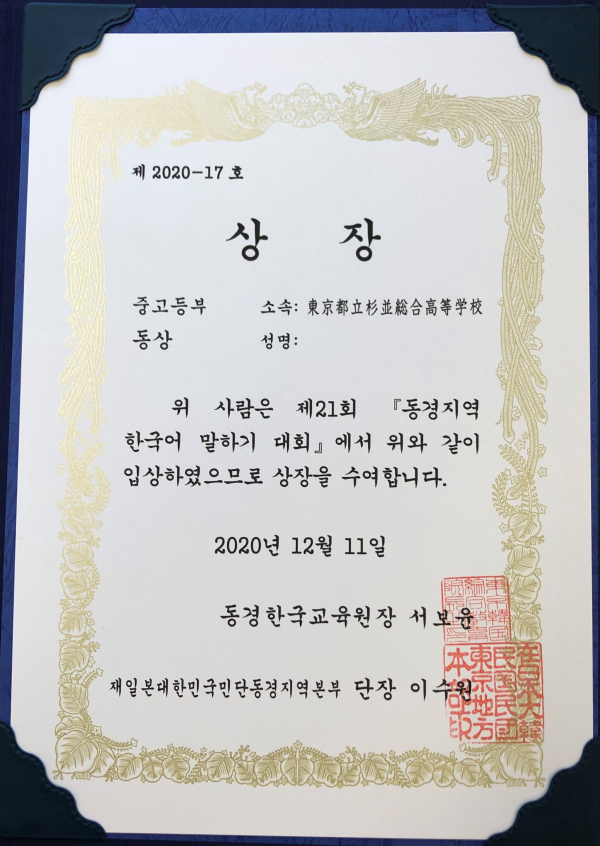 제 2020-17 호
상 장
중고등부 소속: 東京都立杉並総合高等学校
동상 성명:
위 사람은 제21회 『동경지역
한국어 말하기 대회』에서 위와 같이
입상하였으므로 상장을 수여합니다.
2020년 12월 11일
동경한국교육원장 서보윤
재일본대한민국민단동경지역본부 단장 이수원
在日本大韓
民国民団
東京地方
本部印